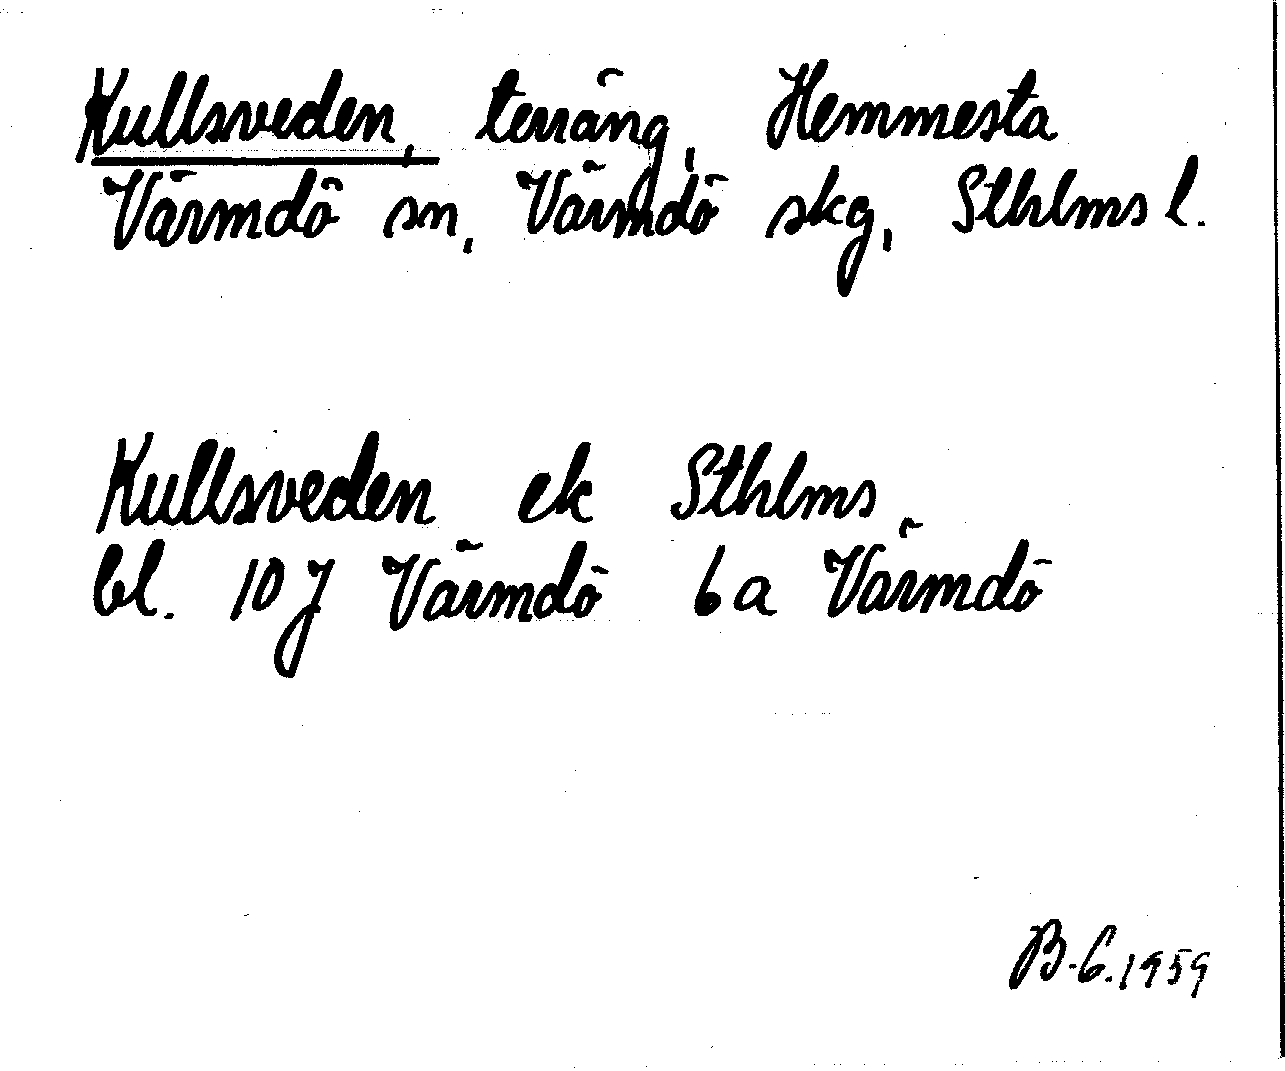 Kullsveden, terräng, Hemmesta
Värmdö sn, Värmdö skg, Sthlms l.
Kullsveden ek Sthlms
bl. 10 J Värmdö 6a Värmdö
B. G. 1959